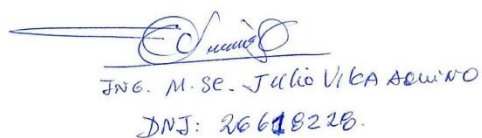 ING. M. Sc. Julio VILCA AQUINO
DNI: 26618228.